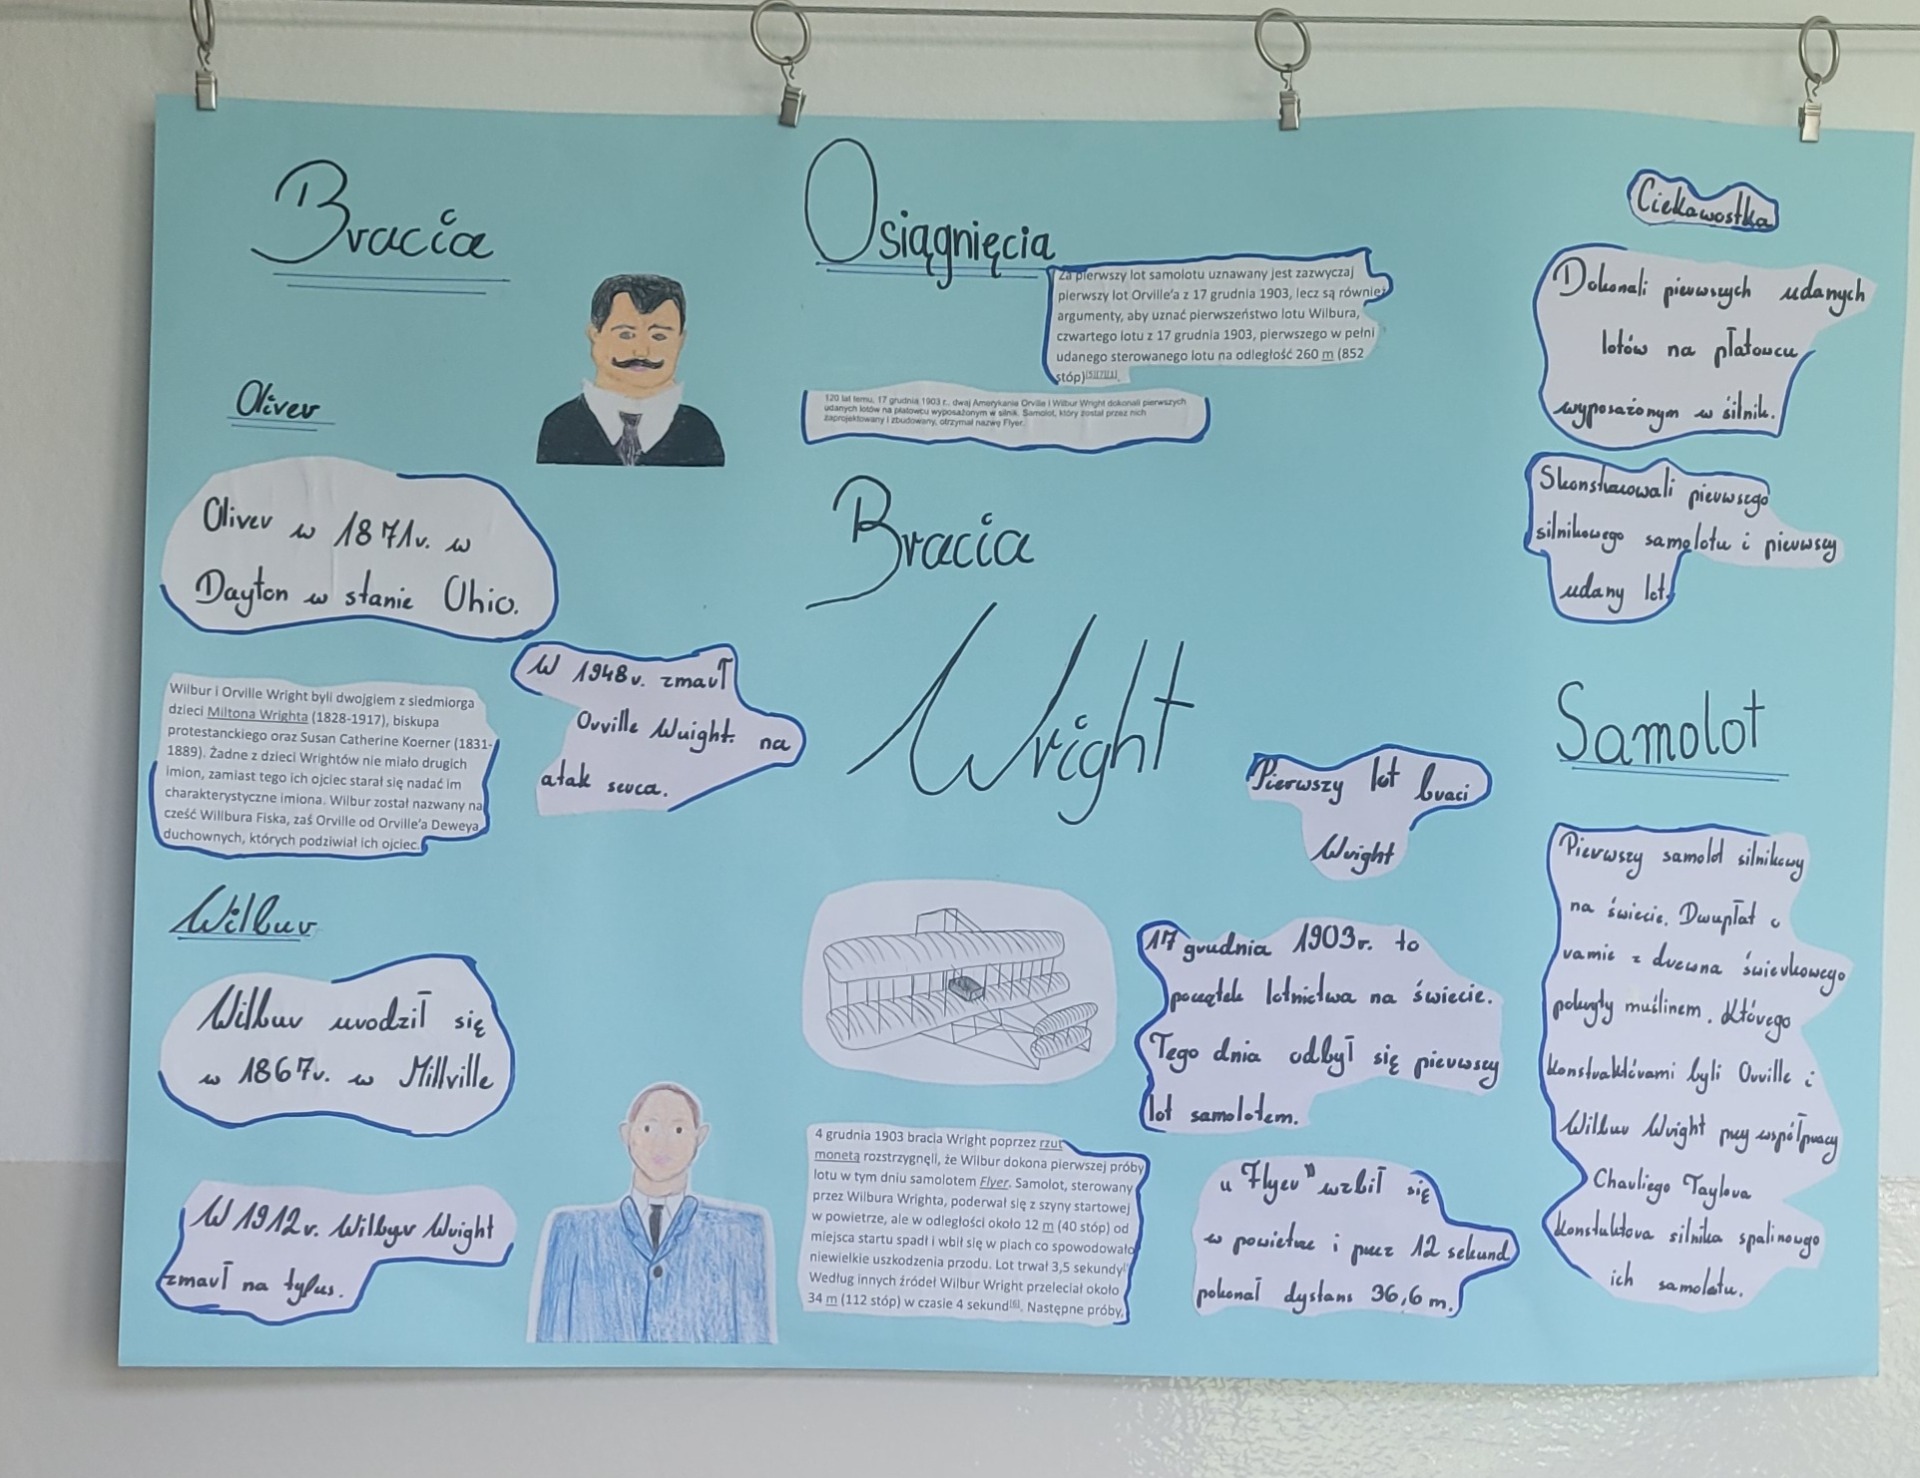 Bracia
Oliver
Oliver w 1871r. w
Dayton w stanie Ohio.
Wilbur i Orville Wright byli dwojgiem z siedmiorga
dzieci Miltona Wrighta (1828-1917), biskupa
protestanckiego oraz Susan Catherine Koerner (1831-
1889). Żadne z dzieci Wrightów nie miało drugich
imion, zamiast tego ich ojciec starał się nadać im
charakterystyczne imiona. Wilbur został nazwany na
cześć Willbura Fiska, zaś Orville od Orville'a Deweya
duchownych, których podziwiał ich ojciec.
W 1948r. zmarł
Orville Wright. na
atak serca.
Wilbur
Wilbur urodził się
w 1867r. w Millville
W 1912r. Wilbyr Wright
zmarł na tyfus.
Osiągnięcia
Za pierwszy lot samolotu uznawany jest zazwyczaj
pierwszy lot Orville'a z 17 grudnia 1903, lecz są również
argumenty, aby uznać pierwszeństwo lotu Wilbura,
czwartego lotu z 17 grudnia 1903, pierwszego w pełni
udanego sterowanego lotu na odległość 260 m (852
stóp)
120 lat temu, 17 grudnia 1903 r., dwaj Amerykanie Orville i Wilbur Wright dokonali pierwszych
udanych lotów na płatowcu wyposażonym w silnik. Samolot, który został przez nich
zaprojektowany i zbudowany, otrzymał nazwę Flyer.
Bracia
Wright
4 grudnia 1903 bracia Wright poprzez rzut
monetą rozstrzygnęli, że Wilbur dokona pierwszej próby
lotu w tym dniu samolotem Flyer. Samolot, sterowany
przez Wilbura Wrighta, poderwał się z szyny startowej
w powietrze, ale w odległości około 12 m (40 stóp) od
miejsca startu spadł i wbił się w piach co spowodowało
niewielkie uszkodzenia przodu. Lot trwał 3,5 sekundy
Według innych źródeł Wilbur Wright przeleciał około
34 m (112 stóp) w czasie 4 sekund. Następne próby,
Pierwszy lot braci
Wright
17 grudnia 1903r. to
początek lotnictwa na świecie.
Tego dnia odbył się pierwszy
lot samolotem.
"Flyer" wzbił się
w powietrze i przez 12 sekund
pokonał dystans 36,6 m.
Ciekawostka
Dokonali pierwszych udanych
lotów na płatowcu
wyposażonym w silnik.
Skonstruowali pierwszego
silnikowego samolotu i pierwszy
udany lot.
Samolot
Pierwszy samolot silnikowy
na świecie. Dwupłat o
ramie z drewna świerkowego
pokryty muślinem. Którego
konstruktórami byli Orville i
Wilbur Wright przy współpracy
Charliego Taylora
konstuktora silnika spalinowgo
ich samolotu.